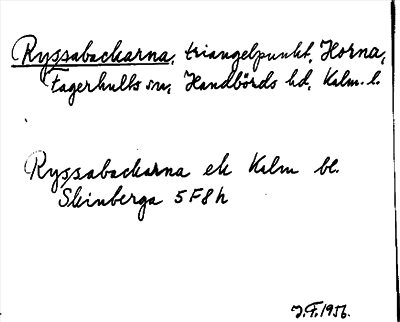 Ryssabackarna, triangelpunkt, Horna,
Fagerhults sn, Handbörds hd, Kalm. l.
Ryssabackarna ek Kalm bl.
Skinberga 5F8h
J.F. 1956.